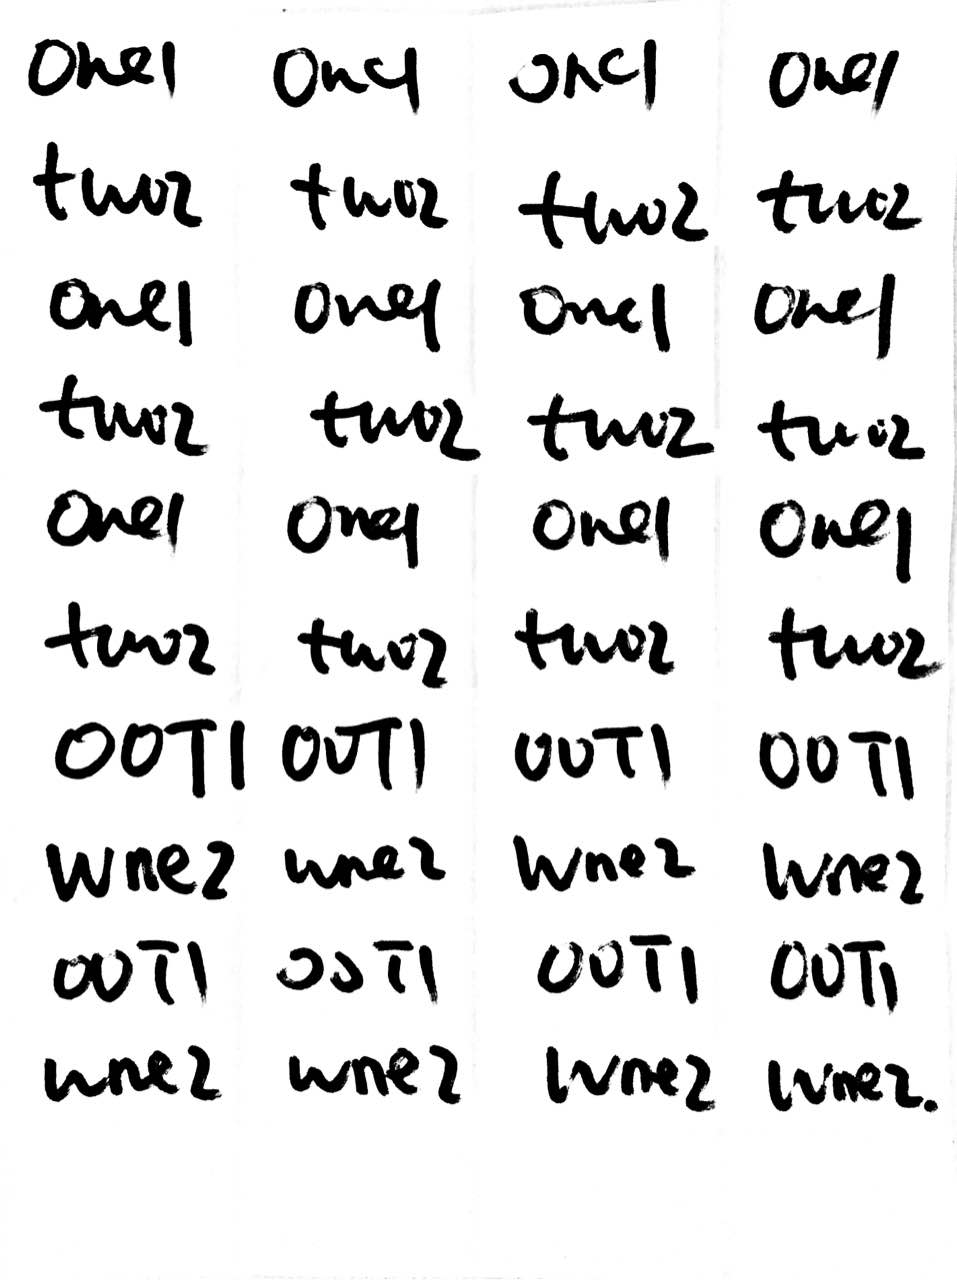 one1 one1 one1 one1
two2 two2 two2 two2
one1 one1 one1 one1
two2 two2 two2 two2
one1 one1 one1 one1
two2 two2 two2 two2
OOT1 OOT1 OOT1 OOT1
wne2 wne2 wne2 wne2
OOT1 OOT1 OOT1 OOT1
wne2 wne2 wne2 wne2.